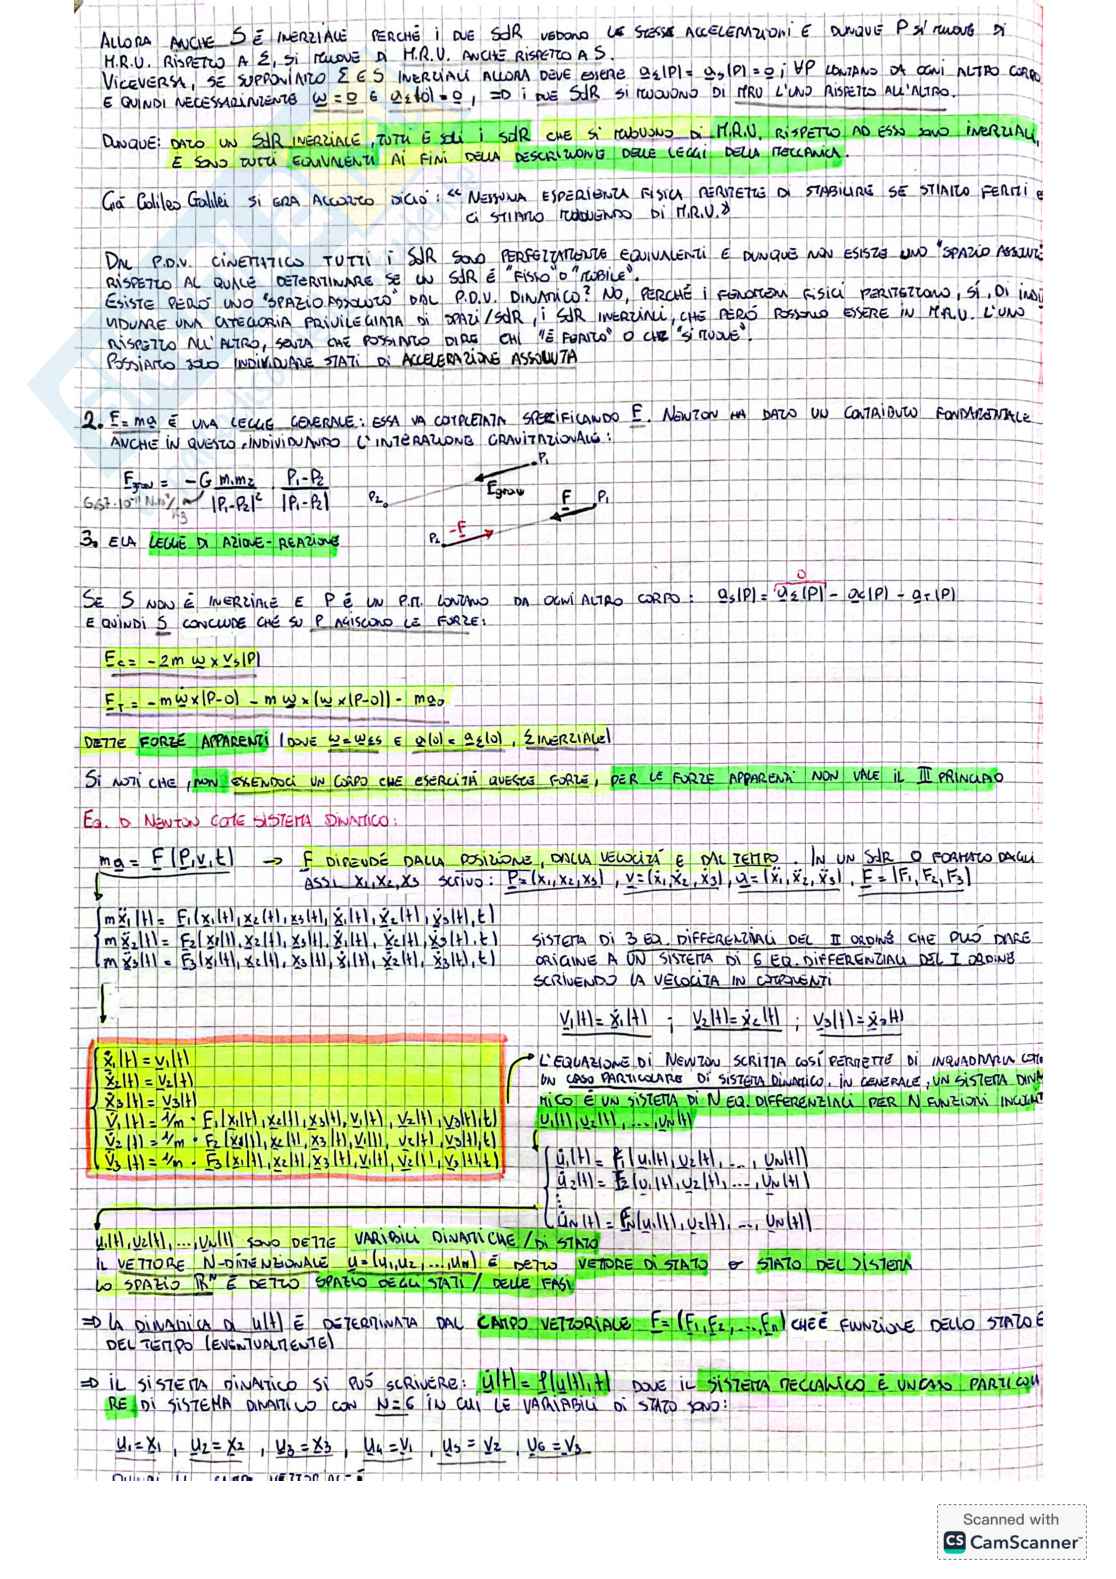 ALLORA ANCHE S È INERZIALE PERCHÉ I DUE SdR VEDONO LE STESSE ACCELERAZIONI E DUNQUE P SI MUOVE DI
M.R.U. RISPETTO A Σ, SI MUOVE DI M.R.U. ANCHE RISPETTO A S.
VICEVERSA, SE SUPPONIAMO Σ E S INERZIALI ALLORA DEVE ESSERE a_Σ(P) = a_S(P) = 0, ∀P LONTANO DA OGNI ALTRO CORPO
E QUINDI NECESSARIAMENTE ω = 0 E a_Σ(O) = 0, => I DUE SdR SI MUOVONO DI MRU L'UNO RISPETTO ALL'ALTRO.
DUNQUE: DATO UN SdR INERZIALE, TUTTI E SOLI I SdR CHE SI MUOVONO DI M.R.U. RISPETTO AD ESSO SONO INERZIALI,
E SONO TUTTI EQUIVALENTI AI FINI DELLA DESCRIZIONE DELLE LEGGI DELLA MECCANICA.
GIÀ Galileo Galilei SI ERA ACCORTO DI CIÒ: "NESSUNA ESPERIENZA FISICA PERMETTE DI STABILIRE SE STIAMO FERMI E
CI STIAMO MUOVENDO DI M.R.U."
DAL P.D.V. CINEMATICO TUTTI I SdR SONO PERFETTAMENTE EQUIVALENTI E DUNQUE NON ESISTE UNO "SPAZIO ASSOLUT
RISPETTO AL QUALE DETERMINARE SE UN SdR È "FISSO" O "MOBILE".
ESISTE PERÒ UNO "SPAZIO ASSOLUTO" DAL P.D.V. DINAMICO? NO, PERCHÉ I FENOMENI FISICI PERMETTONO, SÌ, DI INDI
VIDUARE UNA CATEGORIA PRIVILEGIATA DI SPAZI/SdR, I SdR INERZIALI, CHE PERÒ POSSONO ESSERE IN M.R.U. L'UNO
RISPETTO ALL'ALTRO, SENZA CHE POSSIAMO DIRE CHI "È FERMO" O CHE "SI MUOVE".
POSSIAMO SOLO INDIVIDUARE STATI DI ACCELERAZIONE ASSOLUTA
2. F = ma È UNA LEGGE GENERALE: ESSA VA COMPLETATA SPECIFICANDO F. NEWTON HA DATO UN CONTRIBUTO FONDAMENTALE
ANCHE IN QUESTO, INDIVIDUANDO L'INTERAZIONE GRAVITAZIONALE:
F_grav = -G m₁m₂/|P₁-P₂|² · (P₁-P₂)/|P₁-P₂|
P₁ F_grav P₂
F P₁
-F P₂
3. E LA LEGGE DI AZIONE-REAZIONE
SE S NON È INERZIALE E P È UN P.M. LONTANO DA OGNI ALTRO CORPO: a_S(P) = a_Σ(P) - a_C(P) - a_T(P)
0
E QUINDI S CONCLUDE CHE SU P AGISCONO LE FORZE:
F_C = -2m ω × v_S(P)
F_T = -m ω̇ × (P-O) - m ω × (ω × (P-O)) - m a_O
DETTE FORZE APPARENTI (DOVE ω = ω_ΣS E a(O) = a_Σ(O), Σ INERZIALE)
SI NOTI CHE, NON ESSENDOCI UN CORPO CHE ESERCITA QUESTE FORZE, PER LE FORZE APPARENTI NON VALE IL III PRINCIPIO
EQ. D NEWTON COME SISTEMA DINAMICO:
ma = F(P,v,t) → F DIPENDE DALLA POSIZIONE, DALLA VELOCITÀ E DAL TEMPO. IN UN SdR O FORMATO DAGLI
ASSI X₁,X₂,X₃ SCRIVO: P = (x₁,x₂,x₃), v = (ẋ₁,ẋ₂,ẋ₃), a = (ẍ₁,ẍ₂,ẍ₃), F = (F₁,F₂,F₃)
mẍ₁(t) = F₁(x₁(t), x₂(t), x₃(t), ẋ₁(t), ẋ₂(t), ẋ₃(t), t)
mẍ₂(t) = F₂(x₁(t), x₂(t), x₃(t), ẋ₁(t), ẋ₂(t), ẋ₃(t), t)
mẍ₃(t) = F₃(x₁(t), x₂(t), x₃(t), ẋ₁(t), ẋ₂(t), ẋ₃(t), t)
SISTEMA DI 3 EQ. DIFFERENZIALI DEL II ORDINE CHE PUÒ DARE
ORIGINE A UN SISTEMA DI 6 EQ. DIFFERENZIALI DEL I ORDINE
SCRIVENDO LA VELOCITÀ IN COMPONENTI
v₁(t) = ẋ₁(t) ; v₂(t) = ẋ₂(t) ; v₃(t) = ẋ₃(t)
ẋ₁(t) = v₁(t)
ẋ₂(t) = v₂(t)
ẋ₃(t) = v₃(t)
v̇₁(t) = 1/m · F₁(x₁(t), x₂(t), x₃(t), v₁(t), v₂(t), v₃(t), t)
v̇₂(t) = 1/m · F₂(x₁(t), x₂(t), x₃(t), v₁(t), v₂(t), v₃(t), t)
v̇₃(t) = 1/m · F₃(x₁(t), x₂(t), x₃(t), v₁(t), v₂(t), v₃(t), t)
L'EQUAZIONE DI NEWTON SCRITTA COSÌ PERMETTE DI INQUADRARLA COME
UN CASO PARTICOLARE DI SISTEMA DINAMICO. IN GENERALE, UN SISTEMA DINA
MICO È UN SISTEMA DI N EQ. DIFFERENZIALI PER N FUNZIONI INCOGNIT
u₁(t), u₂(t), ..., u_N(t)
u̇₁(t) = F₁(u₁(t), u₂(t), ..., u_N(t))
u̇₂(t) = F₂(u₁(t), u₂(t), ..., u_N(t))
⋮
u̇_N(t) = F_N(u₁(t), u₂(t), ..., u_N(t))
u₁(t), u₂(t), ..., u_N(t) SONO DETTE VARIBILI DINAMICHE/DI STATO
IL VETTORE N-DIMENZIONALE u = (u₁,u₂,...,u_N) È DETTO VETTORE DI STATO o STATO DEL SISTEMA
LO SPAZIO ℝᴺ È DETTO SPAZIO DEGLI STATI/DELLE FASI
=> LA DINAMICA DI u(t) È DETERMINATA DAL CAMPO VETTORIALE F = (F₁,F₂,...,F_n) CHE È FUNZIONE DELLO STATO E
DEL TEMPO (EVENTUALMENTE)
=> IL SISTEMA DINAMICO SI PUÒ SCRIVERE: u̇(t) = F(u(t), t) DOVE IL SISTEMA MECCANICO È UN CASO PARTICOLA
RE DI SISTEMA DINAMICO CON N=6 IN CUI LE VARIABILI DI STATO SONO:
u₁=x₁, u₂=x₂, u₃=x₃, u₄=v₁, u₅=v₂, u₆=v₃
Scanned with
CS CamScanner